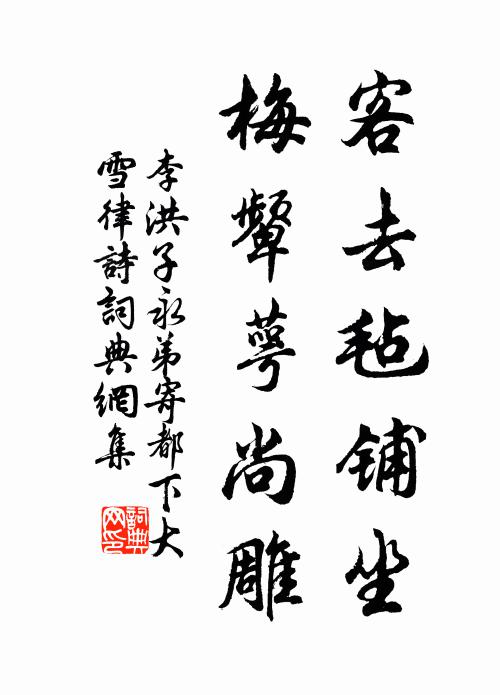 客去毡铺坐
梅颦萼尚雕
李洪子永弟寄都下大
雪律詩詞典網集
詞典网印